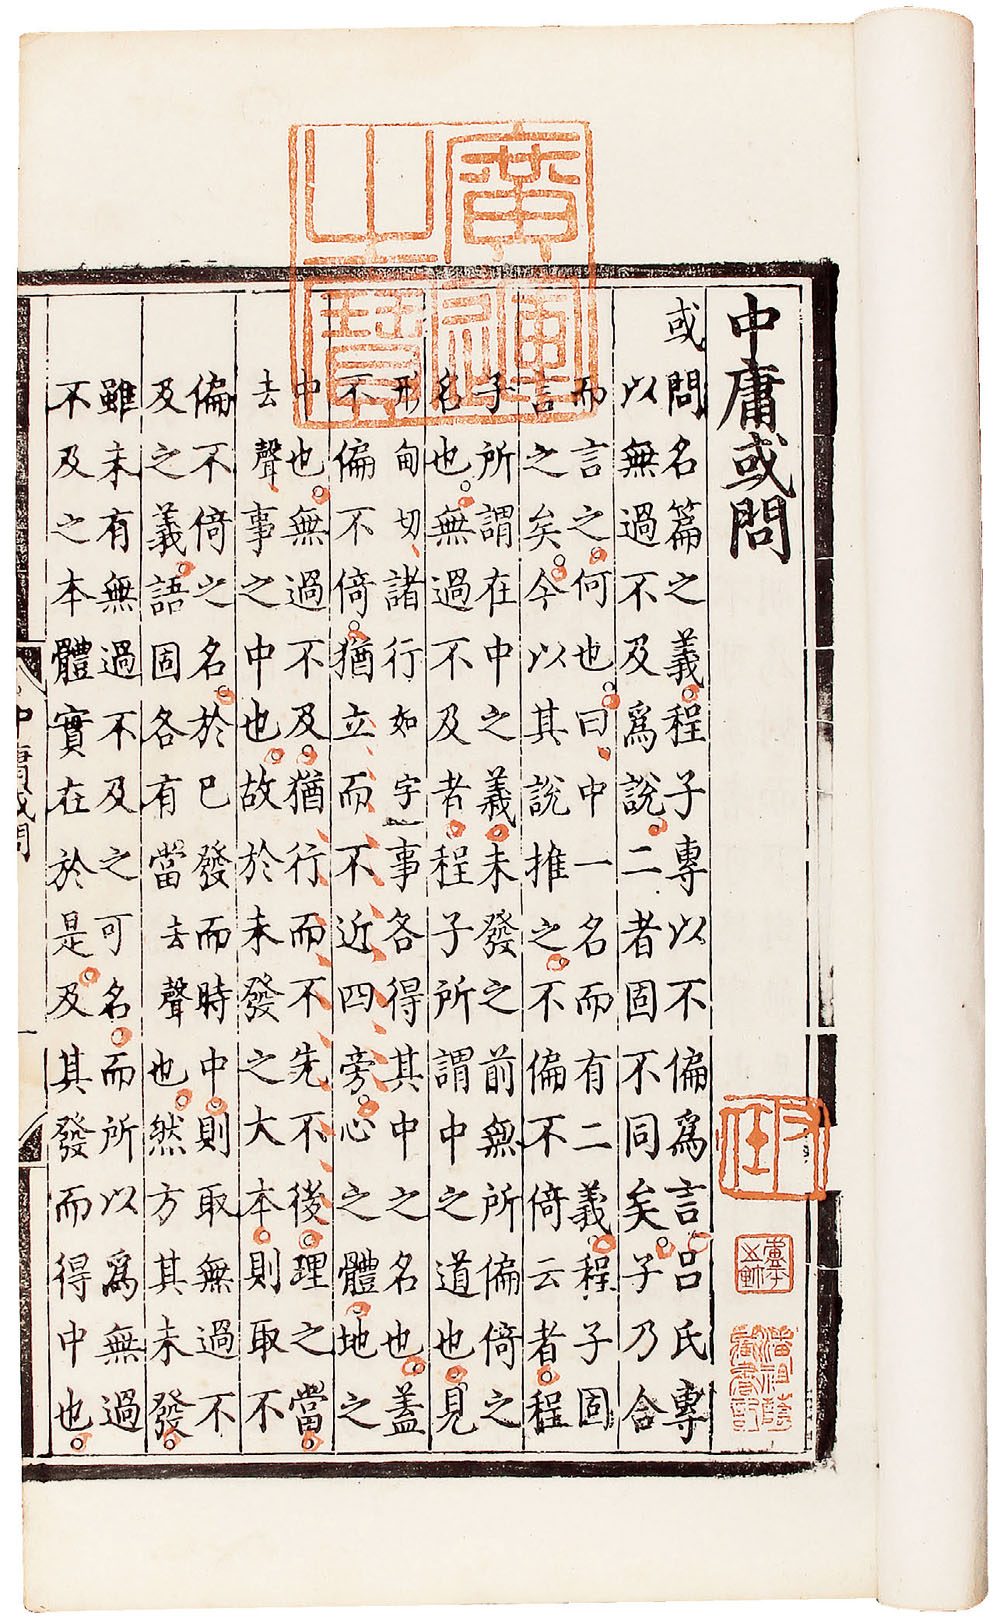 中庸或問
或問名篇之義程子專以不偏爲言呂氏專
以無過不及爲說二者固不同矣子乃合
而言之何也曰中一名而有二義程子固
言之矣今以其說推之不偏不倚云者程
子所謂在中之義未發之前無所偏倚之
名也無過不及者程子所謂中之道也見
形甸切諸行如字事各得其中之名也蓋
不偏不倚猶立而不近四旁心之體地之
中也無過不及猶行而不先不後理之當
去聲事之中也故於未發之大本則取不
偏不倚之名於巳發而時中則取無過不
及之義語固各有當去聲也然方其未發
雖未有無過不及之可名而所以爲無過
不及之本體實在於是及其發而得中也
中庸或問
廣運之寶
潘祖蔭藏書記